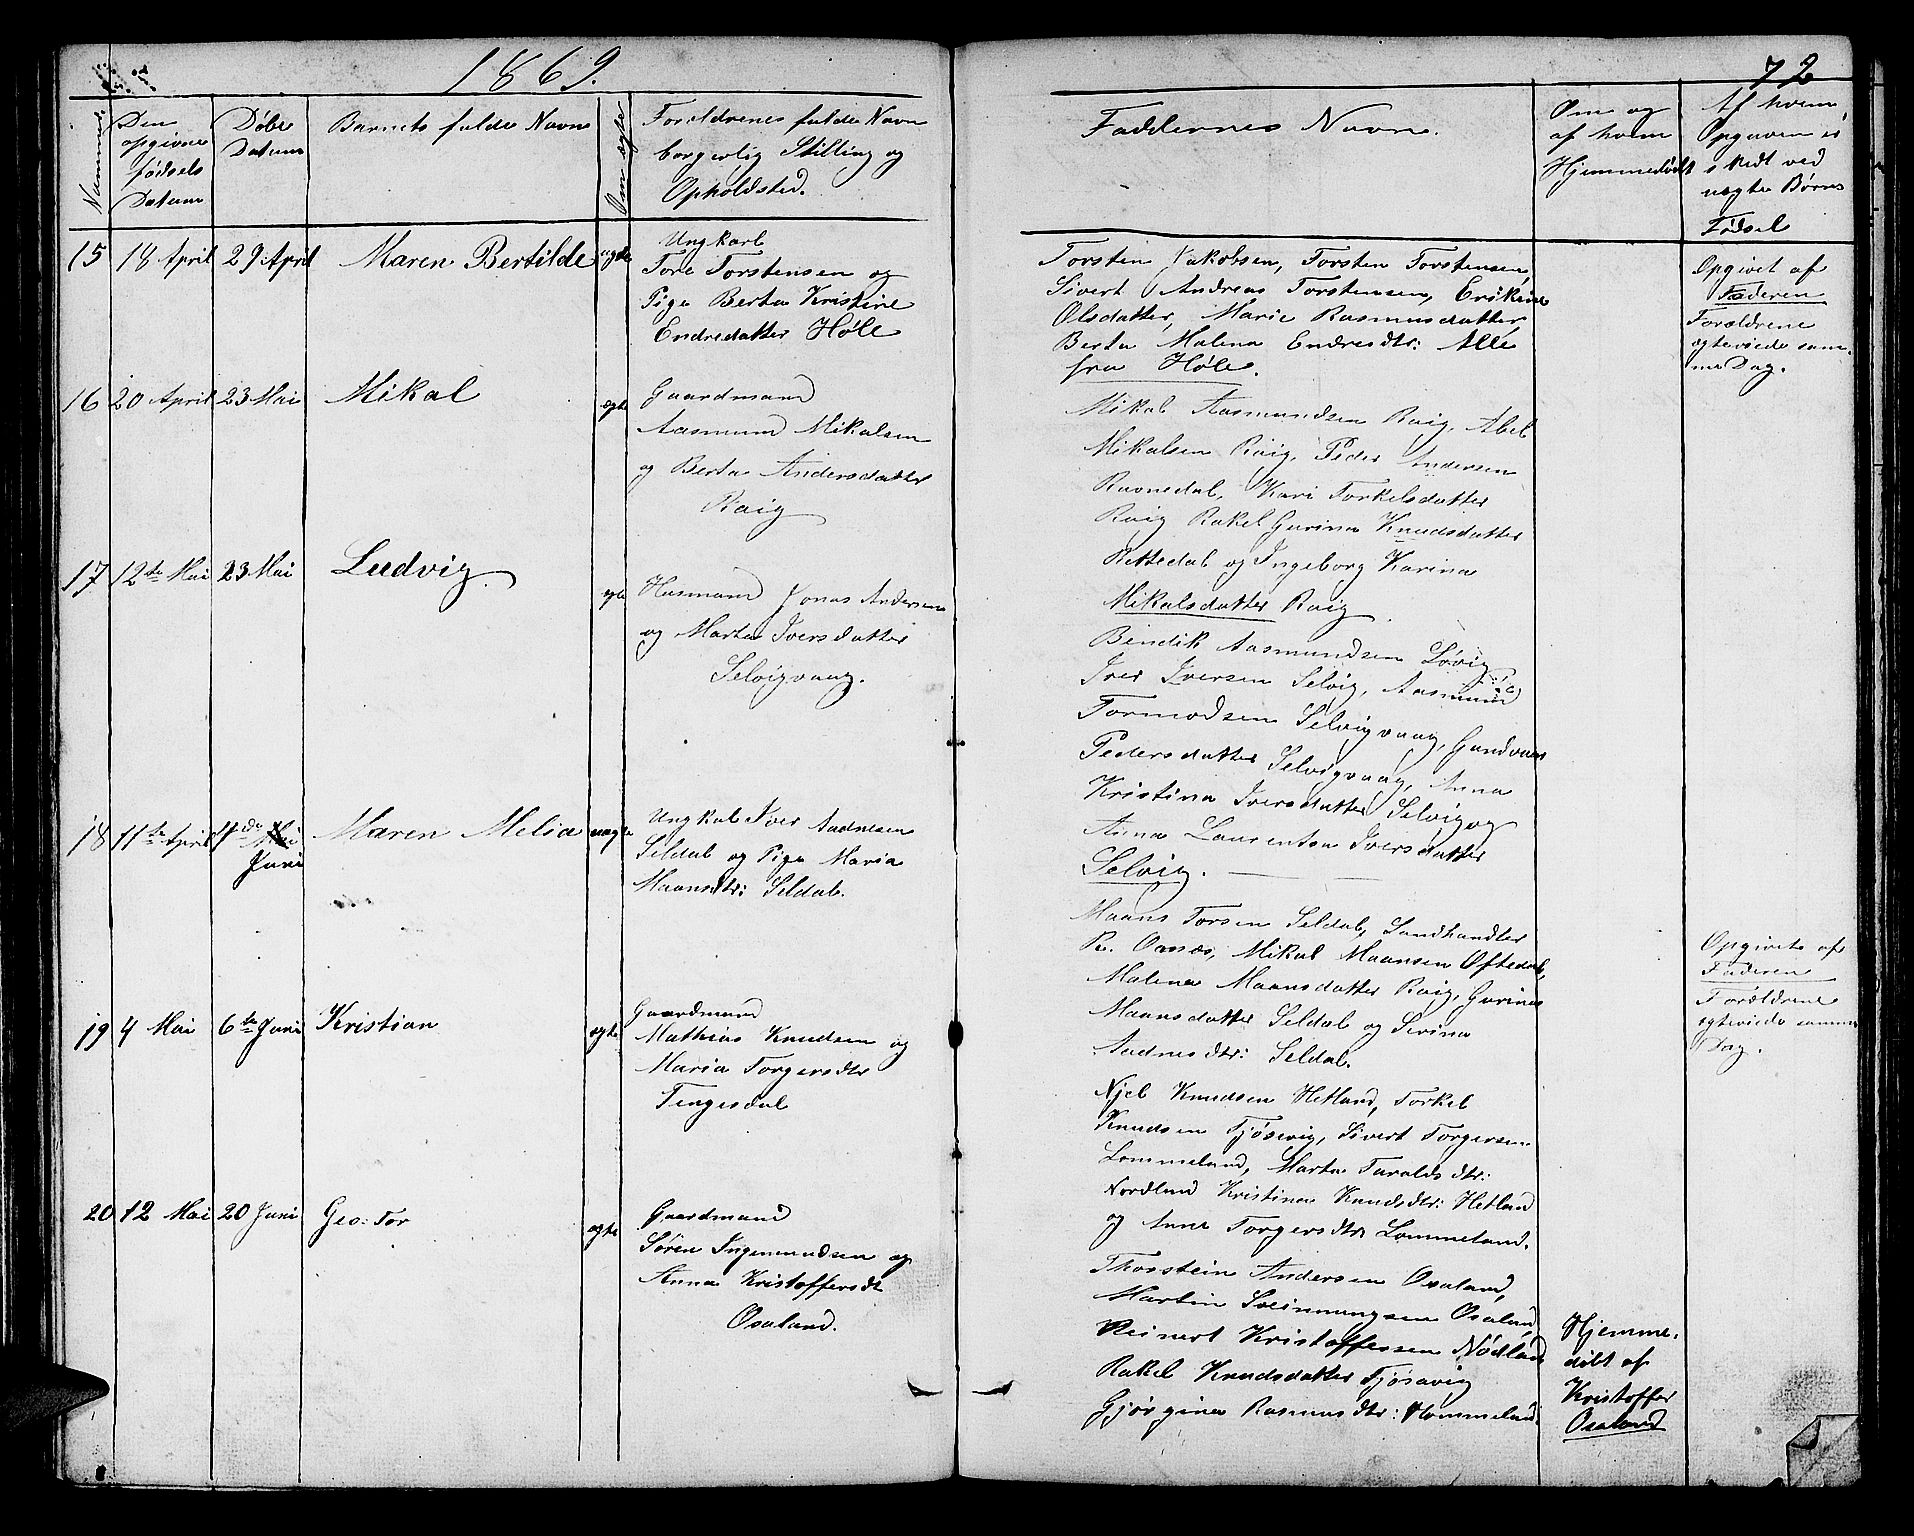 1869.
72
Nummer
Den opgivne fødsels Datum
Døbe Datum
Barnets fulde Navn
Om ægte
Forældrenes fulde Navn
borgerlig Stilling og
Opholdsted.
Faddernes Navne.
Om og af hvem Hjemmedøbt
Af hvem Opgaven er skedt ved uægte Børns Fødsel
15 18 April 29 April Maren Bertilde
Ungkarl
Tore Torstensen og
Pige Berta Kristine
Endredatter Høle
Torsten Jakobsen, Torsten Torstensen,
Sivert Andreas Torstensen, Erikine
Olsdatter, Marie Rasmusdatter,
Berta Malena Endresdtr: Alle
fra Høle.
Opgivet af
Faderen
Forældrene
egteviede sam-
me Dag.
16 20 April 23 Mai Mikal ægte
Gaardmand
Aasmund Mikalsen
og Berta Andersdatter
Raig
Mikal Aasmundsen Raig, Abel
Mikalsen Raig, Peder Andersen
Ravnedal, Kari Torkelsdatter
Raig Rakel Gurina Knudsdatter
Rettedal og Ingeborg Karina
Mikalsdatter Raig.
17 12te Mai 23 Mai Ludvig. egte
Husmand Jonas Andersen
og Marta Iversdatter
Selvigvaag.
Bendik Aasmundsen Løvig,
Iver Iversen Selvig, Aasmund
Tormodsen Selvigvaag, Gundvaar
Pedersdatter Selvigvaag, Anna
Kristina Iversdatter Selvig og
Anna Laurentsa Iversdatter
Selvig.
18 11te April Mai Juni Maren Melia uægte
Ungkal Iver Aadnesen
Seldal og Pige Maria
Maansdtr: Seldal.
Maans Torsen Seldal, Landhandler
R. Oanæs, Mikal Maansen Oftedal,
Malena Maansdatter Raig, Gurina
Maansdatter Seldal og Serina
Aadnesdtr: Seldal.
Opgivets af
Faderen
Forældrene
egteviede samme
Dag.
19 4 Mai 6te Juni Kristian egte
Gaardmand
Mathias Knudsen og
Maria Torgersdtr
Tengesdal
Njel Knudsen Hetland, Torkel
Knudsen Tjøsevig, Sivert Torgersen
Lommeland, Marta Taraldsdtr:
Nordland Kristina Knudsdtr: Hetland
og Anne Torgersdtr Lommeland.
20 12 Mai 20 Juni Geo: Tor egte
Gaardmand
Søren Ingemundsen og
Anna Kristoffersdt
Osaland.
Thorstein Andersen Osaland,
Martin Sveinungsen Osaland
Reinert Kristoffersen Nødland
Rakel Knudsdatter Tjøsavig
Gjørgina Rasmusdtr: Hommeland
Hjemme-
døbt af
Kristoffer
Osaland